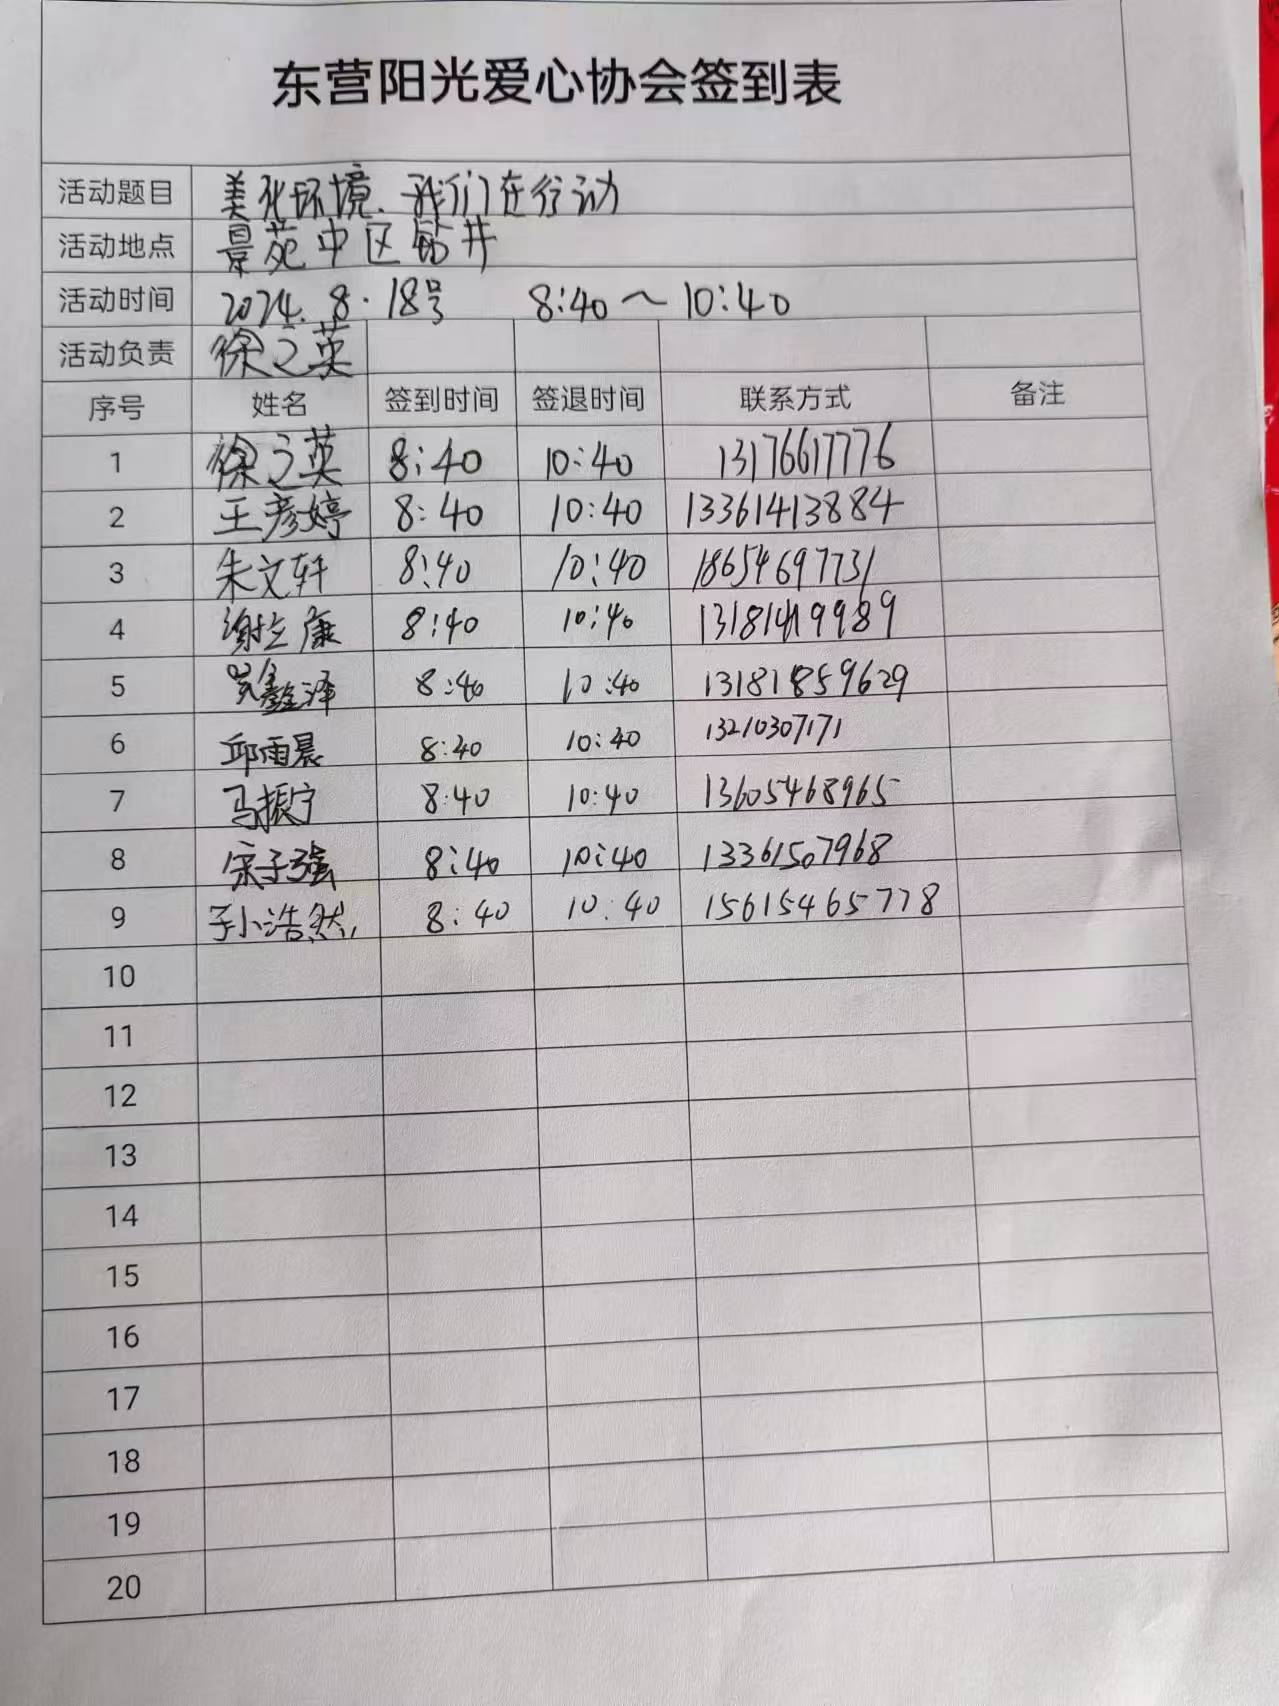 东营阳光爱心协会签到表
活动题目 美化环境.我们在行动
活动地点 景苑中区钻井
活动时间 2024.8.18号 8:40~10:40
活动负责 徐之英
序号 姓名 签到时间 签退时间 联系方式 备注
1 徐之英 8:40 10:40 13176617776
2 王彦婷 8:40 10:40 13361413884
3 朱文轩 8:40 10:40 18654697731
4 谢立康 8:40 10:40
5 鑫泽 8:40 10:40 13181859629
6 邱雨晨 8:40 10:40 13210307171
7 马振宁 8:40 10:40 13605468965
8 宋子强 8:40 10:40 13361507968
9 孙浩然 8:40 10:40 15615465778
10
11
12
13
14
15
16
17
18
19
20